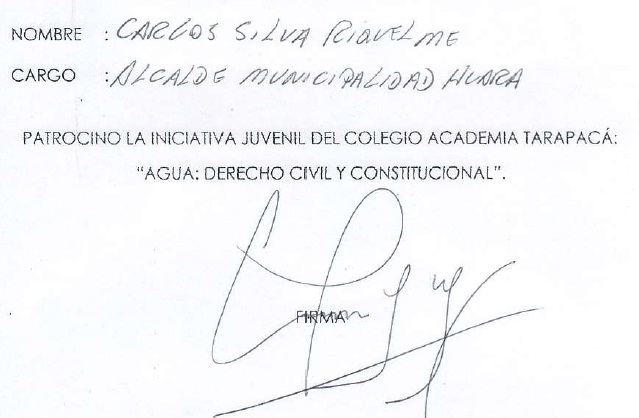 NOMBRE : CARLOS SILVA RIQUELME
CARGO : ALCALDE MUNICIPALIDAD HUARA
PATROCINO LA INICIATIVA JUVENIL DEL COLEGIO ACADEMIA TARAPACÁ:
“AGUA: DERECHO CIVIL Y CONSTITUCIONAL”.
FIRMA